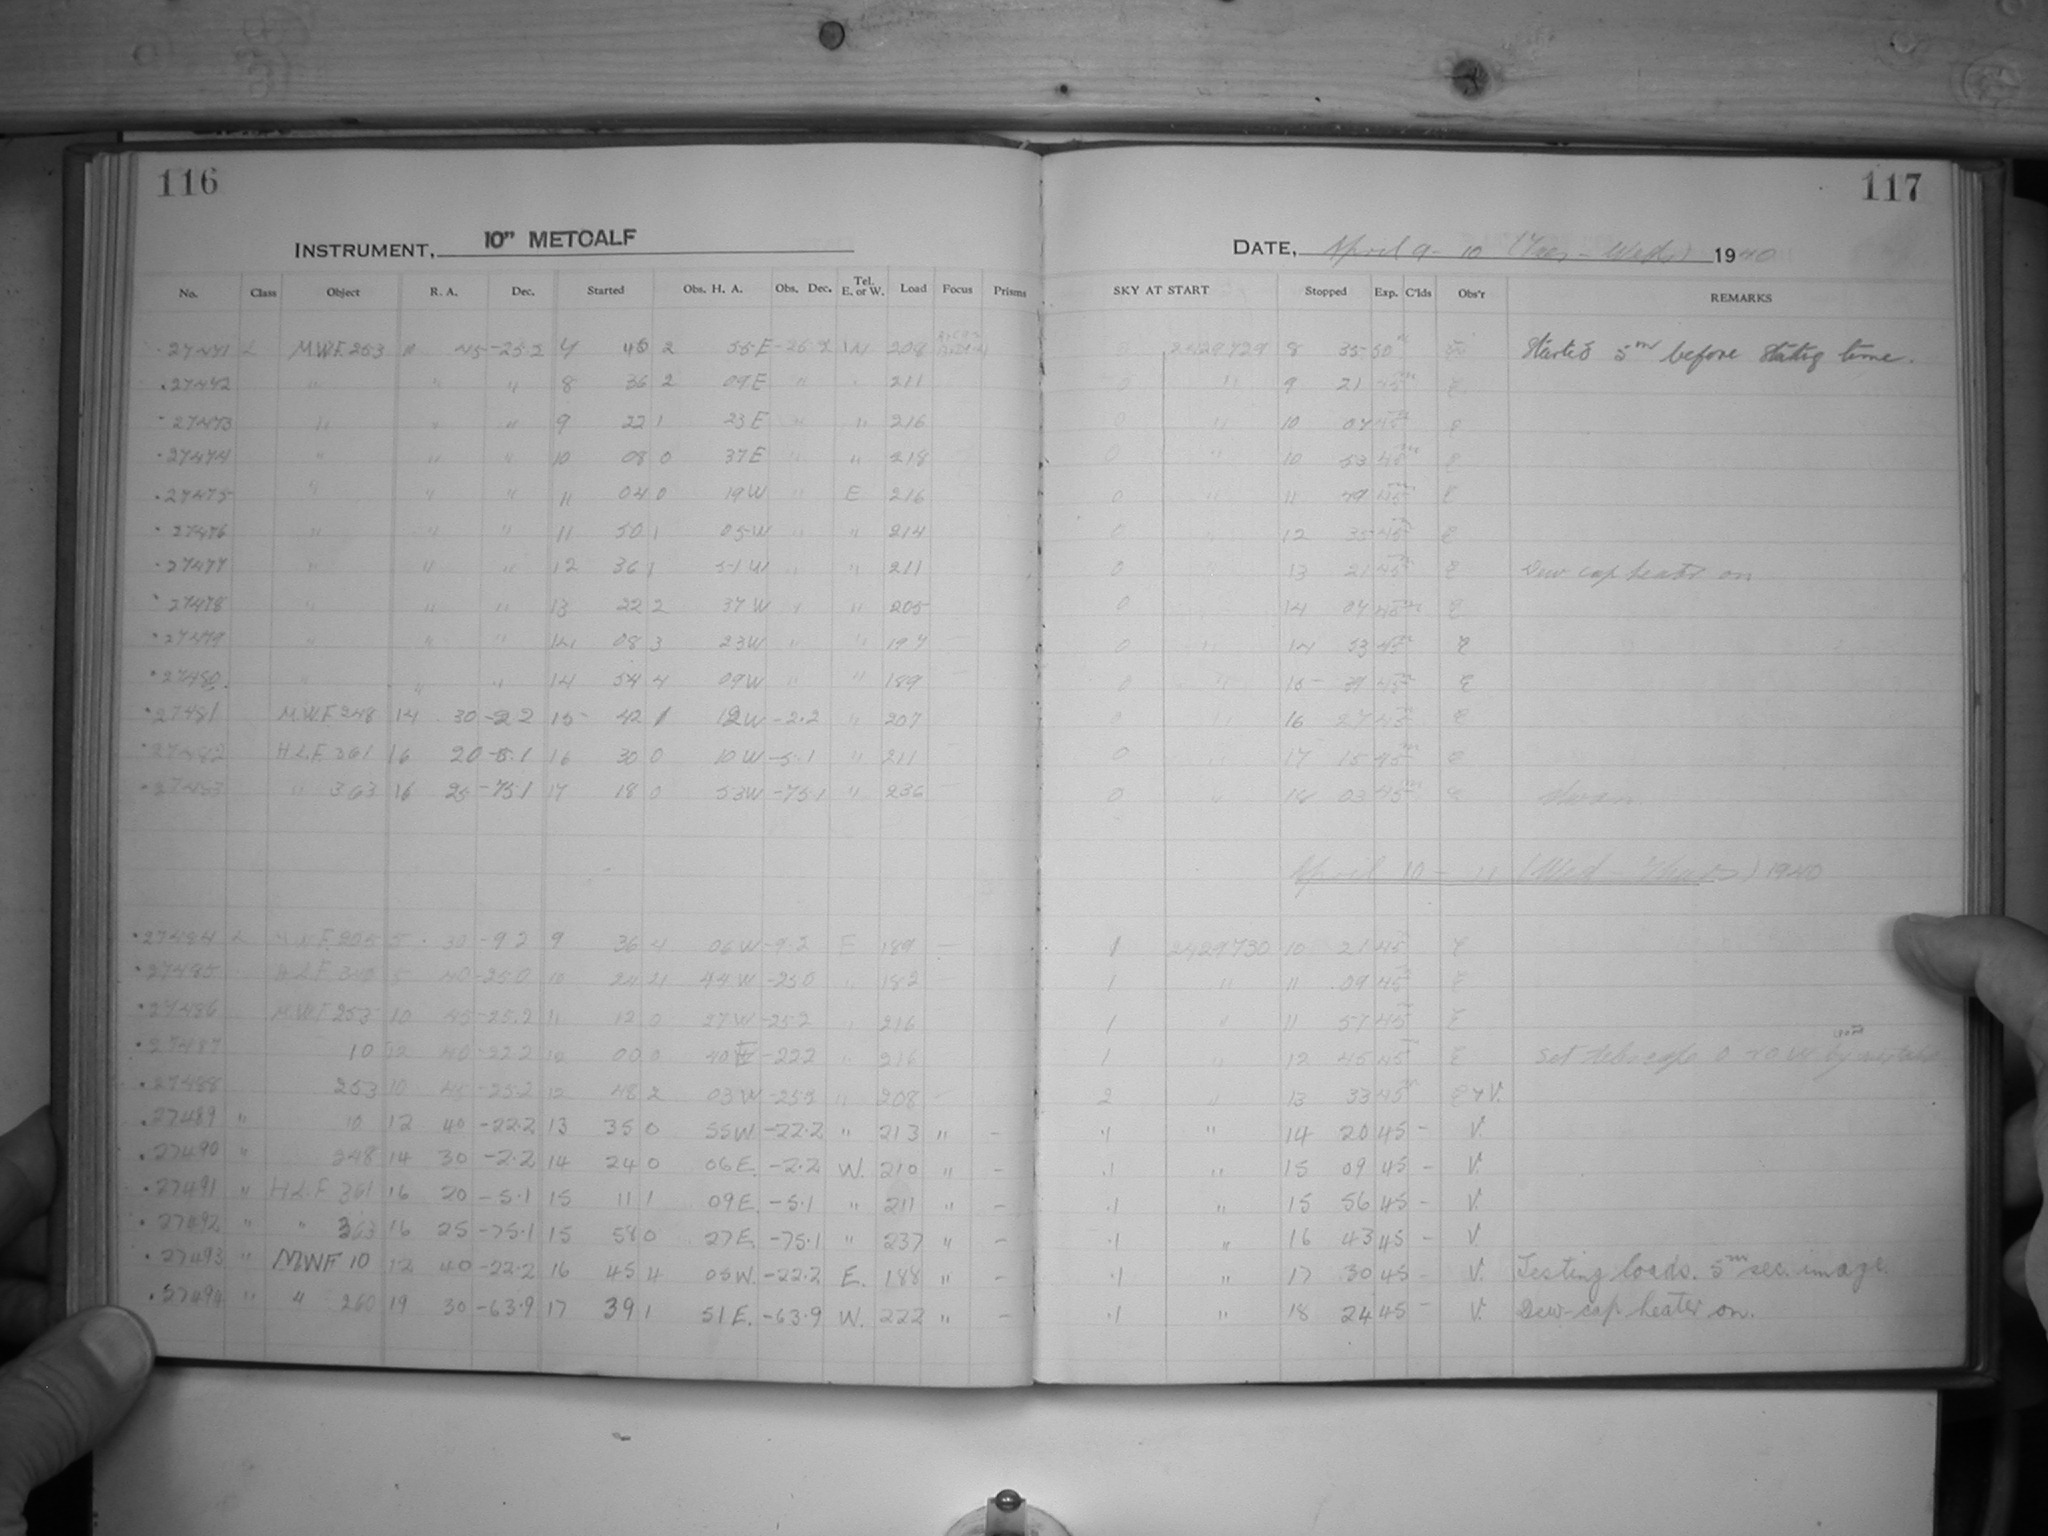 116
INSTRUMENT, 10" METCALF
No. Class Object R. A. Dec. Started Obs. H. A. Obs. Dec. Tel. E. or W. Load Focus Prisms
27471 L MWF 253 10 45 -25.2 7 45 2 55 E -25.2 W 208
27472 " " " 8 36 2 09 E " 211
27473 " " " 9 22 1 23 E " " 216
27474 " " " 10 08 0 37 E " " 218
27475 " " " 11 04 0 19 W " E 216
27476 " " " 11 50 1 05 W " " 214
27477 " " " 12 36 1 51 W " " 211
27478 " " " 13 22 2 37 W " " 205
27479 " " " 14 08 3 23 W " " 197
27480 " " " 14 54 4 09 W " " 189
27481 MWF 248 14 30 -2.2 15 42 1 12 W -2.2 " 207
27482 HLF 361 16 20 -5.1 16 30 0 10 W -5.1 " 211
27483 " 363 16 25 -75.1 17 18 0 53 W -75.1 " 236
27484 L 5 30 -9.2 9 36 4 06 W -9.2 E 189
27485 HLF 5 40 -25.0 10 24 4 44 W -25.0 " 182
27486 MWF 253 10 45 -25.2 11 12 0 27 W -25.2 " 216
27487 10 12 40 -22.2 12 00 0 40 -22.2 " 216
27488 253 10 45 -25.2 12 48 2 03 W -25.2 " 208
27489 " 10 12 40 -22.2 13 35 0 55 W -22.2 " 213 " -
27490 " 248 14 30 -2.2 14 24 0 06 E. -2.2 W. 210 " -
27491 " HLF 361 16 20 -5.1 15 11 1 09 E. -5.1 " 211 " -
27492 " " 363 16 25 -75.1 15 58 0 27 E. -75.1 " 237 " -
27493 " MWF 10 12 40 -22.2 16 45 4 05 W. -22.2 E. 188 " -
27494 " " 260 19 30 -63.9 17 39 1 51 E. -63.9 W. 222 " -
117
DATE, April 9 - 10 (Tues - Wed.) 1940
SKY AT START Stopped Exp. C'lds Obs'r REMARKS
2429729 8 35 50m Started 5m before stating time.
0 " 9 21 45m E
0 " 10 07 45m E
0 " 10 53 45m E
0 " 11 49 45m E
0 " 12 35 45m E
0 " 13 21 45m E Dew cap heater on
0 14 07 45m E
0 " 14 53 45m E
0 " 15 39 45m E
0 " 16 27 45m E
0 " 17 15 45m E
0 " 18 03 45m E
April 10 - 11 (Wed - Thurs) 1940
1 2429730 10 21 45 E
1 " 11 09 45 E
1 " 11 57 45 E
1 " 12 45 45 E Set 0 20 W by mistake
2 " 13 33 45 E & V.
.1 " 14 20 45 - V.
.1 " 15 09 45 - V.
.1 " 15 56 45 - V.
.1 " 16 43 45 - V
.1 " 17 30 45 - V. Testing loads. 5m sec. image.
.1 " 18 24 45 - V. Dew-cap heater on.